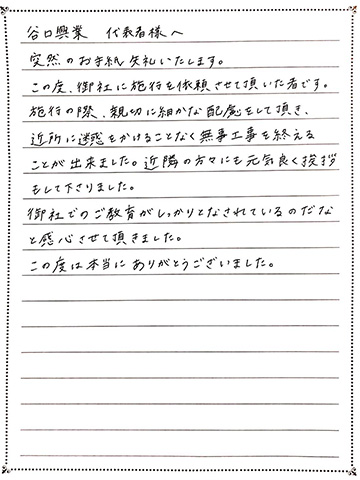 谷口興業　代表者様へ
突然のお手紙失礼いたします。
この度、御社に施行を依頼させて頂いた者です。
施行の際、親切に細かな配慮をして頂き、
近所に迷惑をかけることなく無事工事を終える
ことが出来ました。近隣の方々にも元気良く挨拶
もして下さりました。
御社でのご教育がしっかりとなされているのだな
と感心させて頂きました。
この度は本当にありがとうございました。